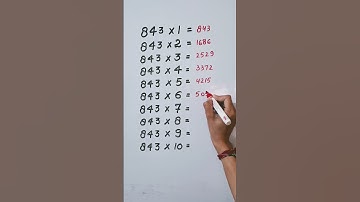 843 × 1 = 843
843 × 2 = 1686
843 × 3 = 2529
843 × 4 = 3372
843 × 5 = 4215
843 × 6 = 50
843 × 7 =
843 × 8 =
843 × 9 =
843 × 10 =